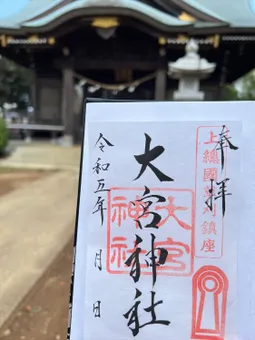 奉拝
上総國夷灯鎮座
大宮神社
大宮
神社
令和五年 月 日